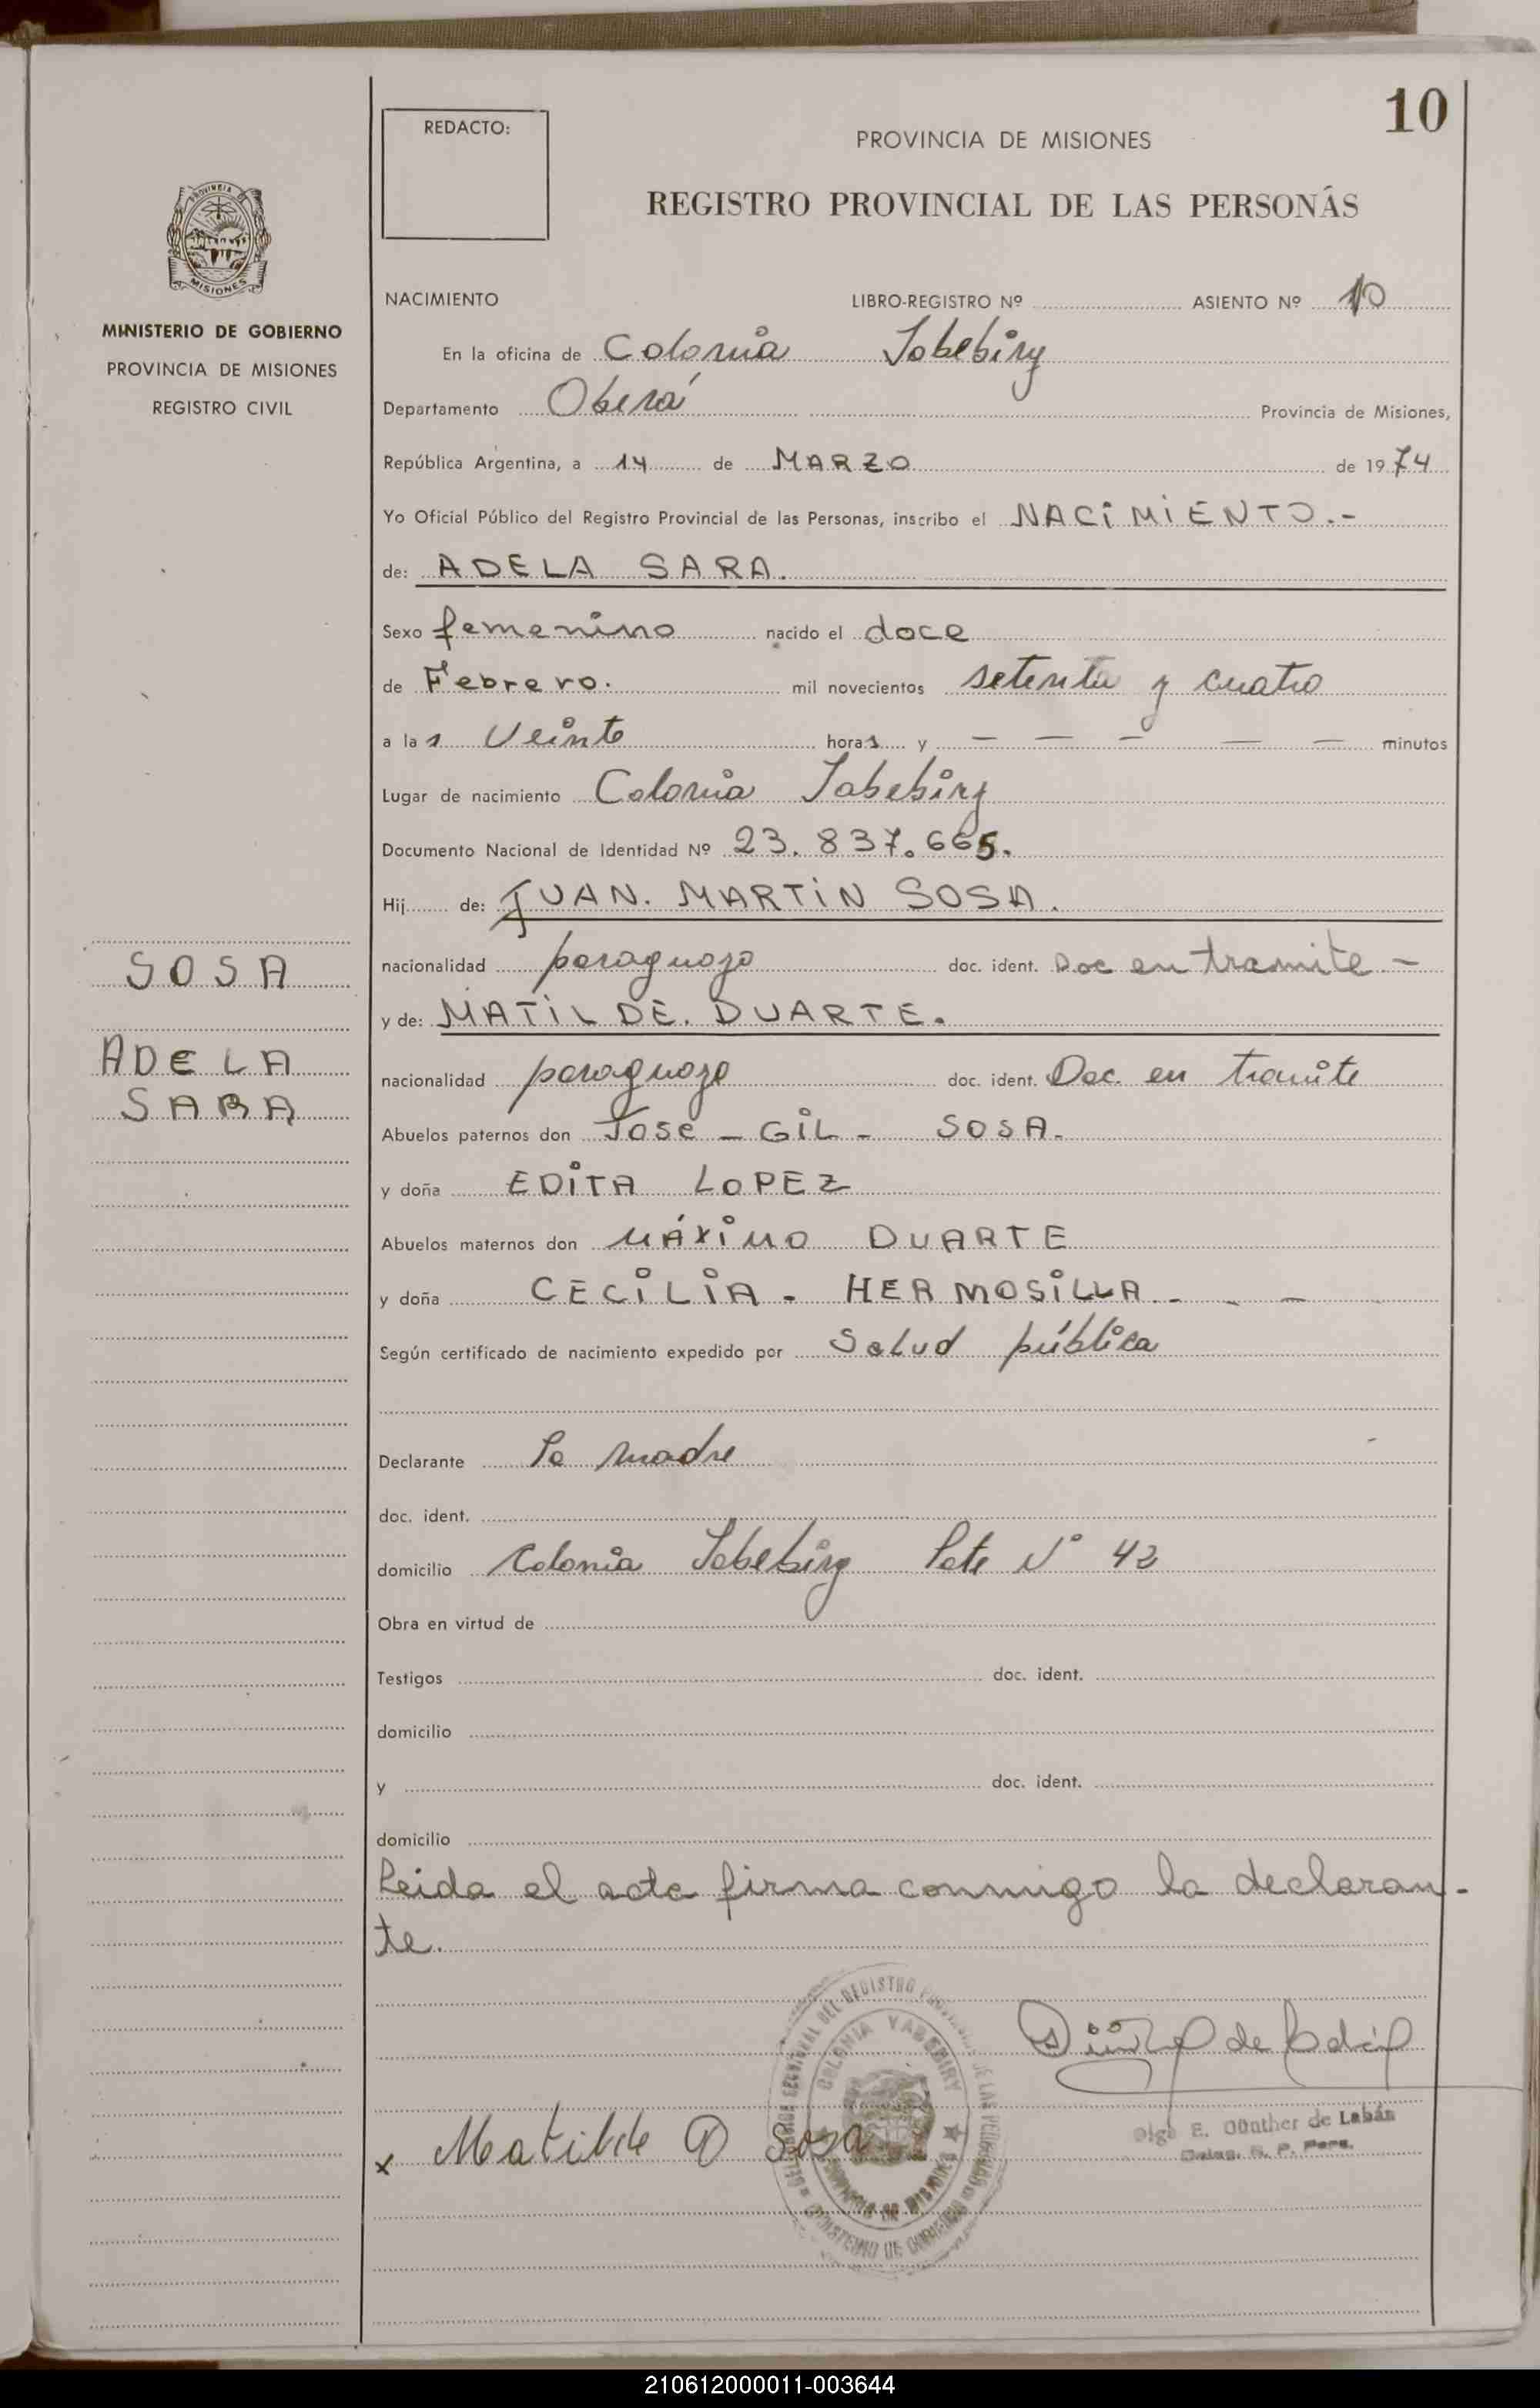 10
REDACTO:
PROVINCIA DE MISIONES
REGISTRO PROVINCIAL DE LAS PERSONAS
PROVINCIA DE
MISIONES
MINISTERIO DE GOBIERNO
PROVINCIA DE MISIONES
REGISTRO CIVIL
NACIMIENTO LIBRO-REGISTRO Nº ASIENTO Nº 10
En la oficina de Colonia Jabebiry
Departamento Oberá Provincia de Misiones,
República Argentina, a 14 de MARZO de 1974
Yo Oficial Público del Registro Provincial de las Personas, inscribo el NACiMiENTO.-
de: ADELA SARA.
Sexo femenino nacido el doce
de Febrero. mil novecientos setenta y cuatro
a las Veinte horas y — — — — — minutos
Lugar de nacimiento Colonia Jabebiry
Documento Nacional de Identidad Nº 23.837.665.
Hij de: JUAN. MARTiN SOSA.
nacionalidad paraguayo doc. ident. Doc en tramite -
y de: MATiLDE. DUARTE.
nacionalidad paraguayo doc. ident. Doc. en tramite
Abuelos paternos don Jose - GiL - SOSA.
y doña EDiTA LOPEZ
Abuelos maternos don MÁXiMO DUARTE
y doña CECiLiA - HERMOSiLLA. - - -
Según certificado de nacimiento expedido por Salud pública
Declarante La madre
doc. ident.
domicilio Colonia Jabebiry Lote Nº 42
Obra en virtud de
Testigos doc. ident.
domicilio
y doc. ident.
domicilio
Leida el acta firma conmigo la declaran-
te.
SOSA
ADELA
SARA
COLONIA YABEBIRY
Olga E. Günther de Labán
Deleg. R. P. Pers.
x Matilde D Sosa
210612000011-003644